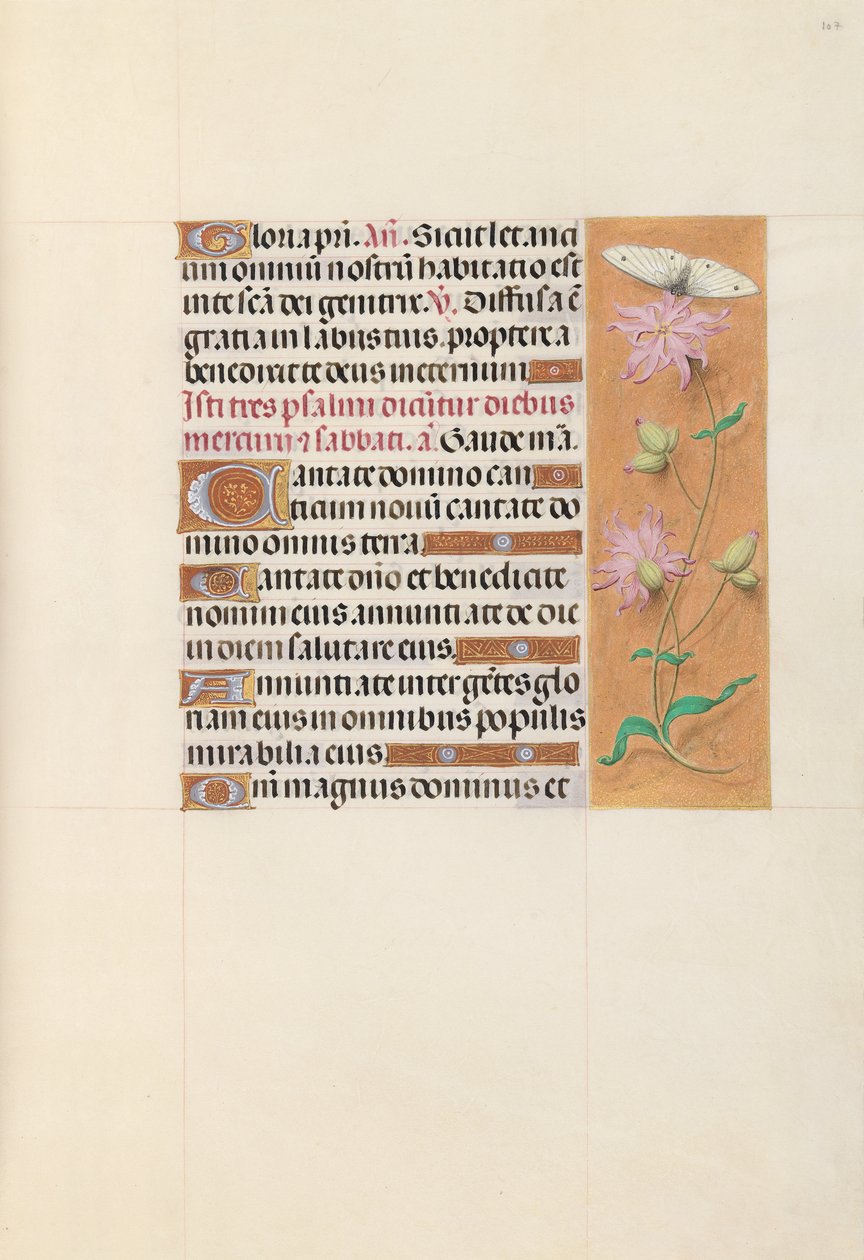 107
Gloria pri̅. An̅. Sicut letanci
um omniu̅ nostru̅ habitatio est
in te sc̅a dei genitrix. V̅. Diffusa e̅
gratia in labiis tuis. propterea
benedixit te deus in eternum
Isti tres psalmi dicu̅tur diebus
mercurij ⁊ sabbati. a̅. Gaude m̅a.
Cantate domino can
ticum nouu̅ cantate do
mino omnis terra
Cantate dn̅o et benedicite
nomini eius annuntiate de die
in diem salutare eius.
Annuntiate inter ge̅tes glo
riam eius in omnibus populis
mirabilia eius
Qm̅ magnus dominus et